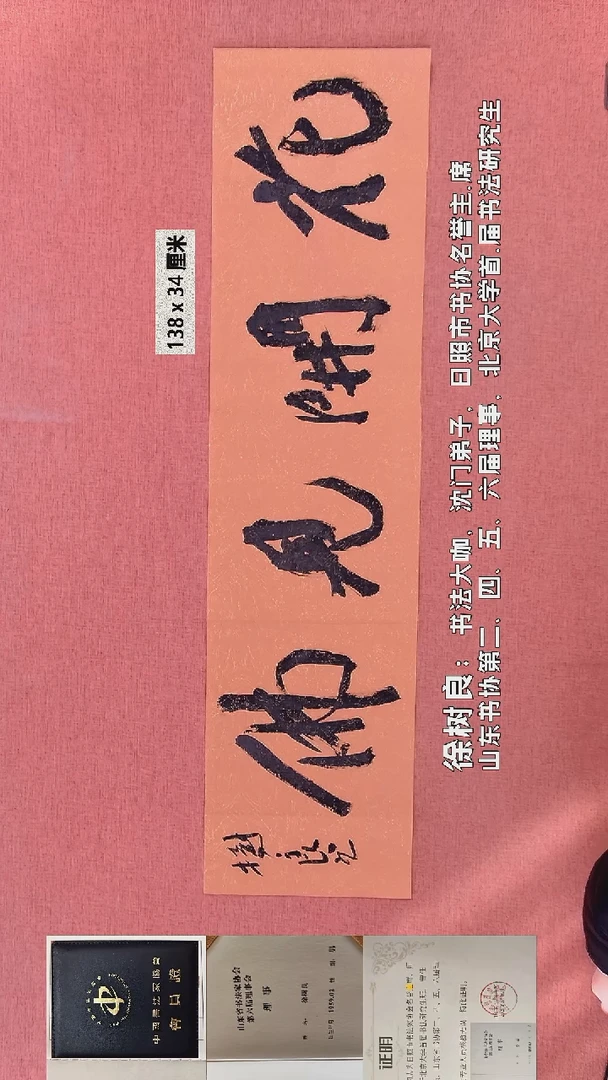 138 x 34 厘米
花開見佛
樹良
徐树良：书法大咖，沈门弟子，日照市书协名誉主席
山东书协第二、四、五、六届理事，北京大学首届书法研究生
中國書法家協會
會員證
山东省书法家协会
第六届理事会
理事
证明